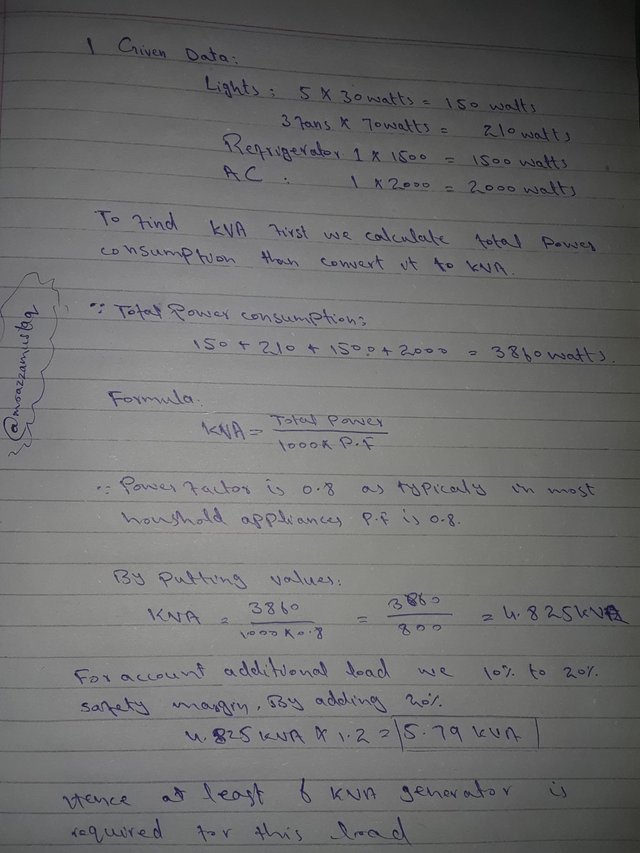 1 Given Data:
Lights: 5 X 30 watts = 150 watts
3 Fans X 70 watts = 210 watts
Refrigerator 1 X 1500 = 1500 watts
AC : 1 X 2000 = 2000 watts
To Find KVA First we calculate total Power
consumption than convert it to KVA.
∵ Total Power consumption:
150 + 210 + 1500 + 2000 = 3860 watts.
Formula:
KVA = Total Power / 1000 X P.F
∵ Power Factor is 0.8 as typicaly in most
houshold appliances P.F is 0.8.
By Putting values:
KVA = 3860 / 1000 X 0.8 = 3860 / 800 = 4.825 KVA
For account additional load we 10% to 20%
safety margin. By adding 20%
4.825 KVA X 1.2 = 5.79 KVA
Hence at least 6 KVA generator is
required for this load
@moazzamustaq